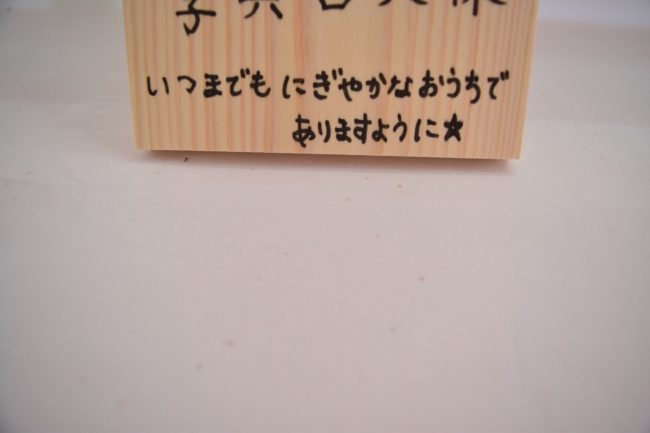 いつまでも にぎやかなおうちで
ありますように★